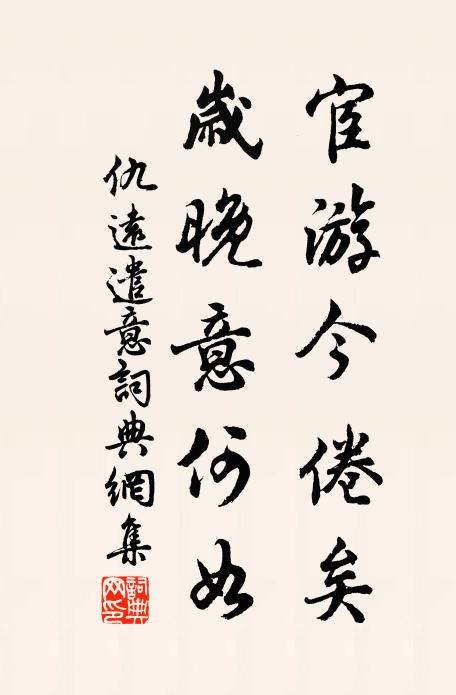 宦游今倦矣
歲晚意何如
仇遠遣意詞典網集
詞典網印